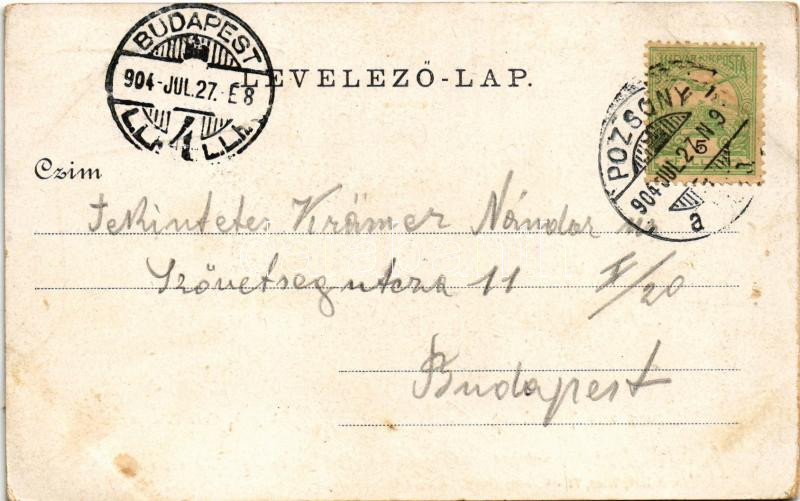 BUDAPEST
904-JUL.27. E8
LEVELEZŐ-LAP.
POZSONY
904 JUL.27.N 9
a
5
Czim
Tekintetes Krämer Nándor úr
Szövetseg utcza 11 I/20
Budapest